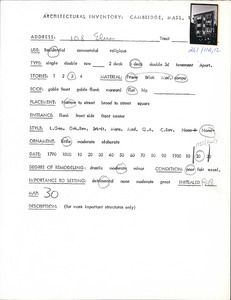 ARCHITECTURAL INVENTORY: CAMBRIDGE, MASS.
ADDRESS: 108 Elm Tract
USE: Residential commercial religious
TYPE: single double row 2 deck 3 deck double 3d tenement Apart.
STORIES: 1 2 3 4 MATERIAL: frame brick
ROOF: gable front gable flank mansard flat hip
PLACEMENT: narrow to street broad to street square
ENTRANCE: flank front side front center
STYLE:
ORNAMENT: little moderate elaborate
DATE: 1790 1800 10 20 30 40 50 60 70 80 90 1900 10 20 30
DEGREE OF REMODELING: drastic moderate minor CONDITION: poor fair excel.
IMPORTANCE TO SETTING: detrimental none moderate great INITIALED
MAP 30
DESCRIPTION: (for more important structures only)